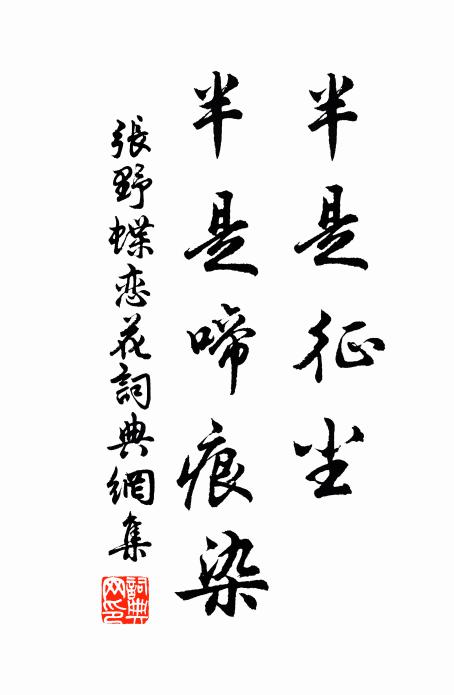 半是征尘
半是啼痕染
張野蝶恋花詞典網集
詞典网印